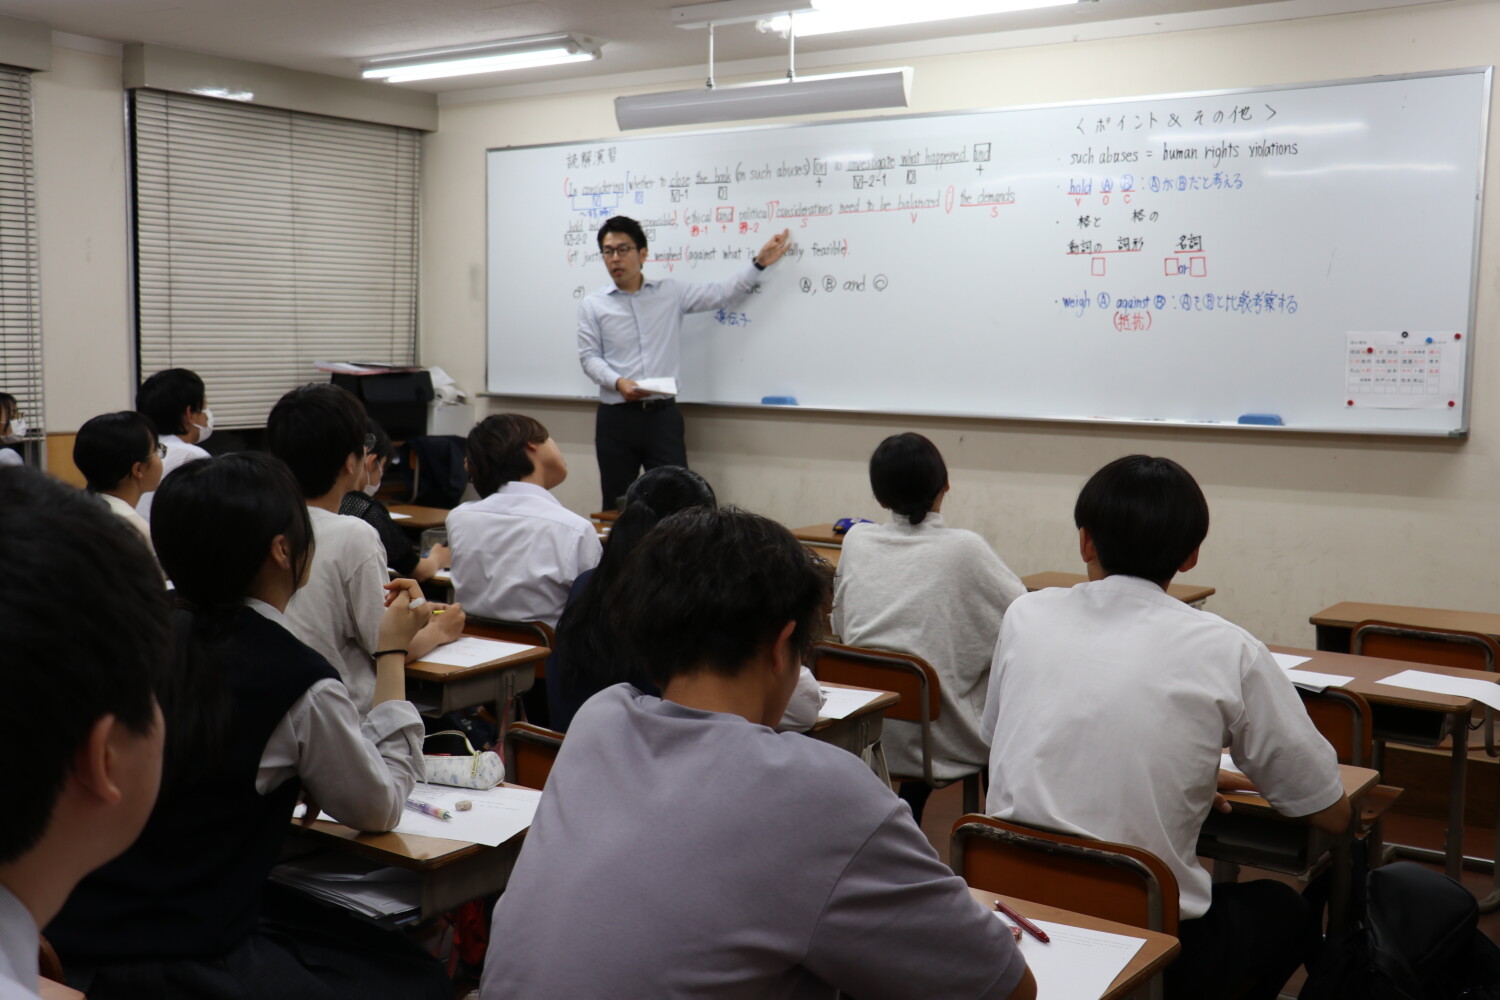 読解演習
(In considering [whether to close the book (on such abuses) or to investigate what happened and
V-1 O + V-2-1 O +
hold responsible], (ethical and political) considerations need to be balanced : the demands
V-2-2 C -1 + -2 S V S
(of weighed (against what is feasible).
V
Ⓐ, Ⓑ and Ⓒ
遺伝子
< ポイント & その他 >
・such abuses = human rights violations
・hold Ⓐ Ⓑ : ⒶがⒷだと考える
V O C
・ 格と 格の
動詞の 詞形 名詞
□ □or□
・weigh Ⓐ against Ⓑ : ⒶをⒷと比較考察する
(抵抗)